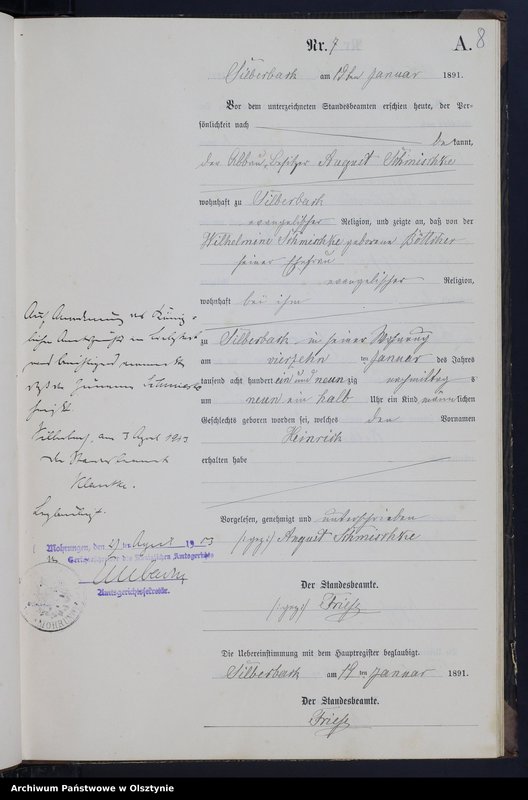 Nr. 7
A. 8
Silberbach am 19ten Januar 1891.
Vor dem unterzeichneten Standesbeamten erschien heute, der Per-
sönlichkeit nach
bekannt,
der Abbau-Besitzer August Schmischke
wohnhaft zu Silberbach
evangelischer Religion, und zeigte an, daß von der
Wilhelmine Schmischke geborene Böttcher
seiner Ehefrau
evangelischer Religion,
wohnhaft bei ihm
zu Silberbach in seiner Wohnung
am vierzehnten Januar des Jahres
tausend acht hundert ein und neunzig nachmittags
um neun ein halb Uhr ein Kind männlichen
Geschlechts geboren worden sei, welches den Vornamen
Heinrich
erhalten habe
Vorgelesen, genehmigt und unterschrieben
(gez) August Schmischke
Der Standesbeamte.
(gez) Friese
Die Uebereinstimmung mit dem Hauptregister beglaubigt.
Silberbach am 19ten Januar 1891.
Der Standesbeamte.
Friese
Auf Anordnung des König-
lichen
Silberbach, am 3 April 1913
Der Standesbeamte
Klanke.
Beglaubigt.
Mohrungen, den 21ten April 1913
Gerichtsschreiber des Königlichen Amtsgerichts
Amtsgerichtssekretär.
Archiwum Państwowe w Olsztynie